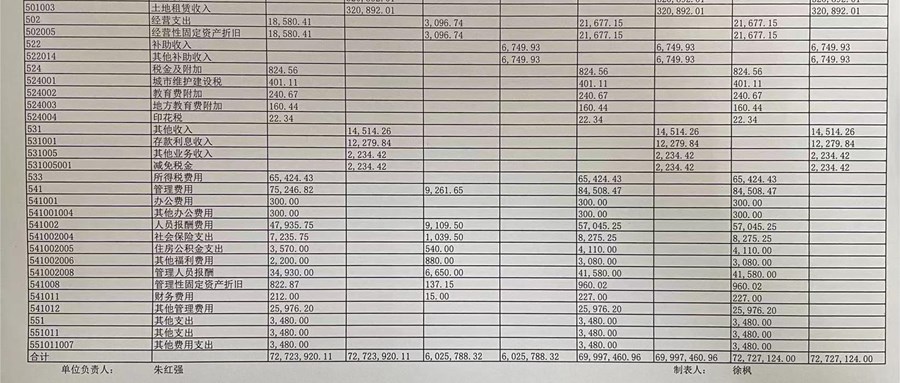 501003 土地租赁收入 320,892.01 320,892.01 320,892.01
502 经营支出 18,580.41 3,096.74 21,677.15 21,677.15
502005 经营性固定资产折旧 18,580.41 3,096.74 21,677.15 21,677.15
522 补助收入 6,749.93 6,749.93 6,749.93
522014 其他补助收入 6,749.93 6,749.93 6,749.93
524 税金及附加 824.56 824.56 824.56
524001 城市维护建设税 401.11 401.11 401.11
524002 教育费附加 240.67 240.67 240.67
524003 地方教育费附加 160.44 160.44 160.44
524004 印花税 22.34 22.34 22.34
531 其他收入 14,514.26 14,514.26 14,514.26
531001 存款利息收入 12,279.84 12,279.84 12,279.84
531005 其他业务收入 2,234.42 2,234.42 2,234.42
531005001 减免税金 2,234.42 2,234.42 2,234.42
533 所得税费用 65,424.43 65,424.43 65,424.43
541 管理费用 75,246.82 9,261.65 84,508.47 84,508.47
541001 办公费用 300.00 300.00 300.00
541001004 其他办公费用 300.00 300.00 300.00
541002 人员报酬费用 47,935.75 9,109.50 57,045.25 57,045.25
541002004 社会保险支出 7,235.75 1,039.50 8,275.25 8,275.25
541002005 住房公积金支出 3,570.00 540.00 4,110.00 4,110.00
541002006 其他福利费用 2,200.00 880.00 3,080.00 3,080.00
541002008 管理人员报酬 34,930.00 6,650.00 41,580.00 41,580.00
541008 管理性固定资产折旧 822.87 137.15 960.02 960.02
541011 财务费用 212.00 15.00 227.00 227.00
541012 其他管理费用 25,976.20 25,976.20 25,976.20
551 其他支出 3,480.00 3,480.00 3,480.00
551011 其他支出 3,480.00 3,480.00 3,480.00
551011007 其他费用支出 3,480.00 3,480.00 3,480.00
合计 72,723,920.11 72,723,920.11 6,025,788.32 6,025,788.32 69,997,460.96 69,997,460.96 72,727,124.00 72,727,124.00
单位负责人: 朱红强 制表人: 徐枫